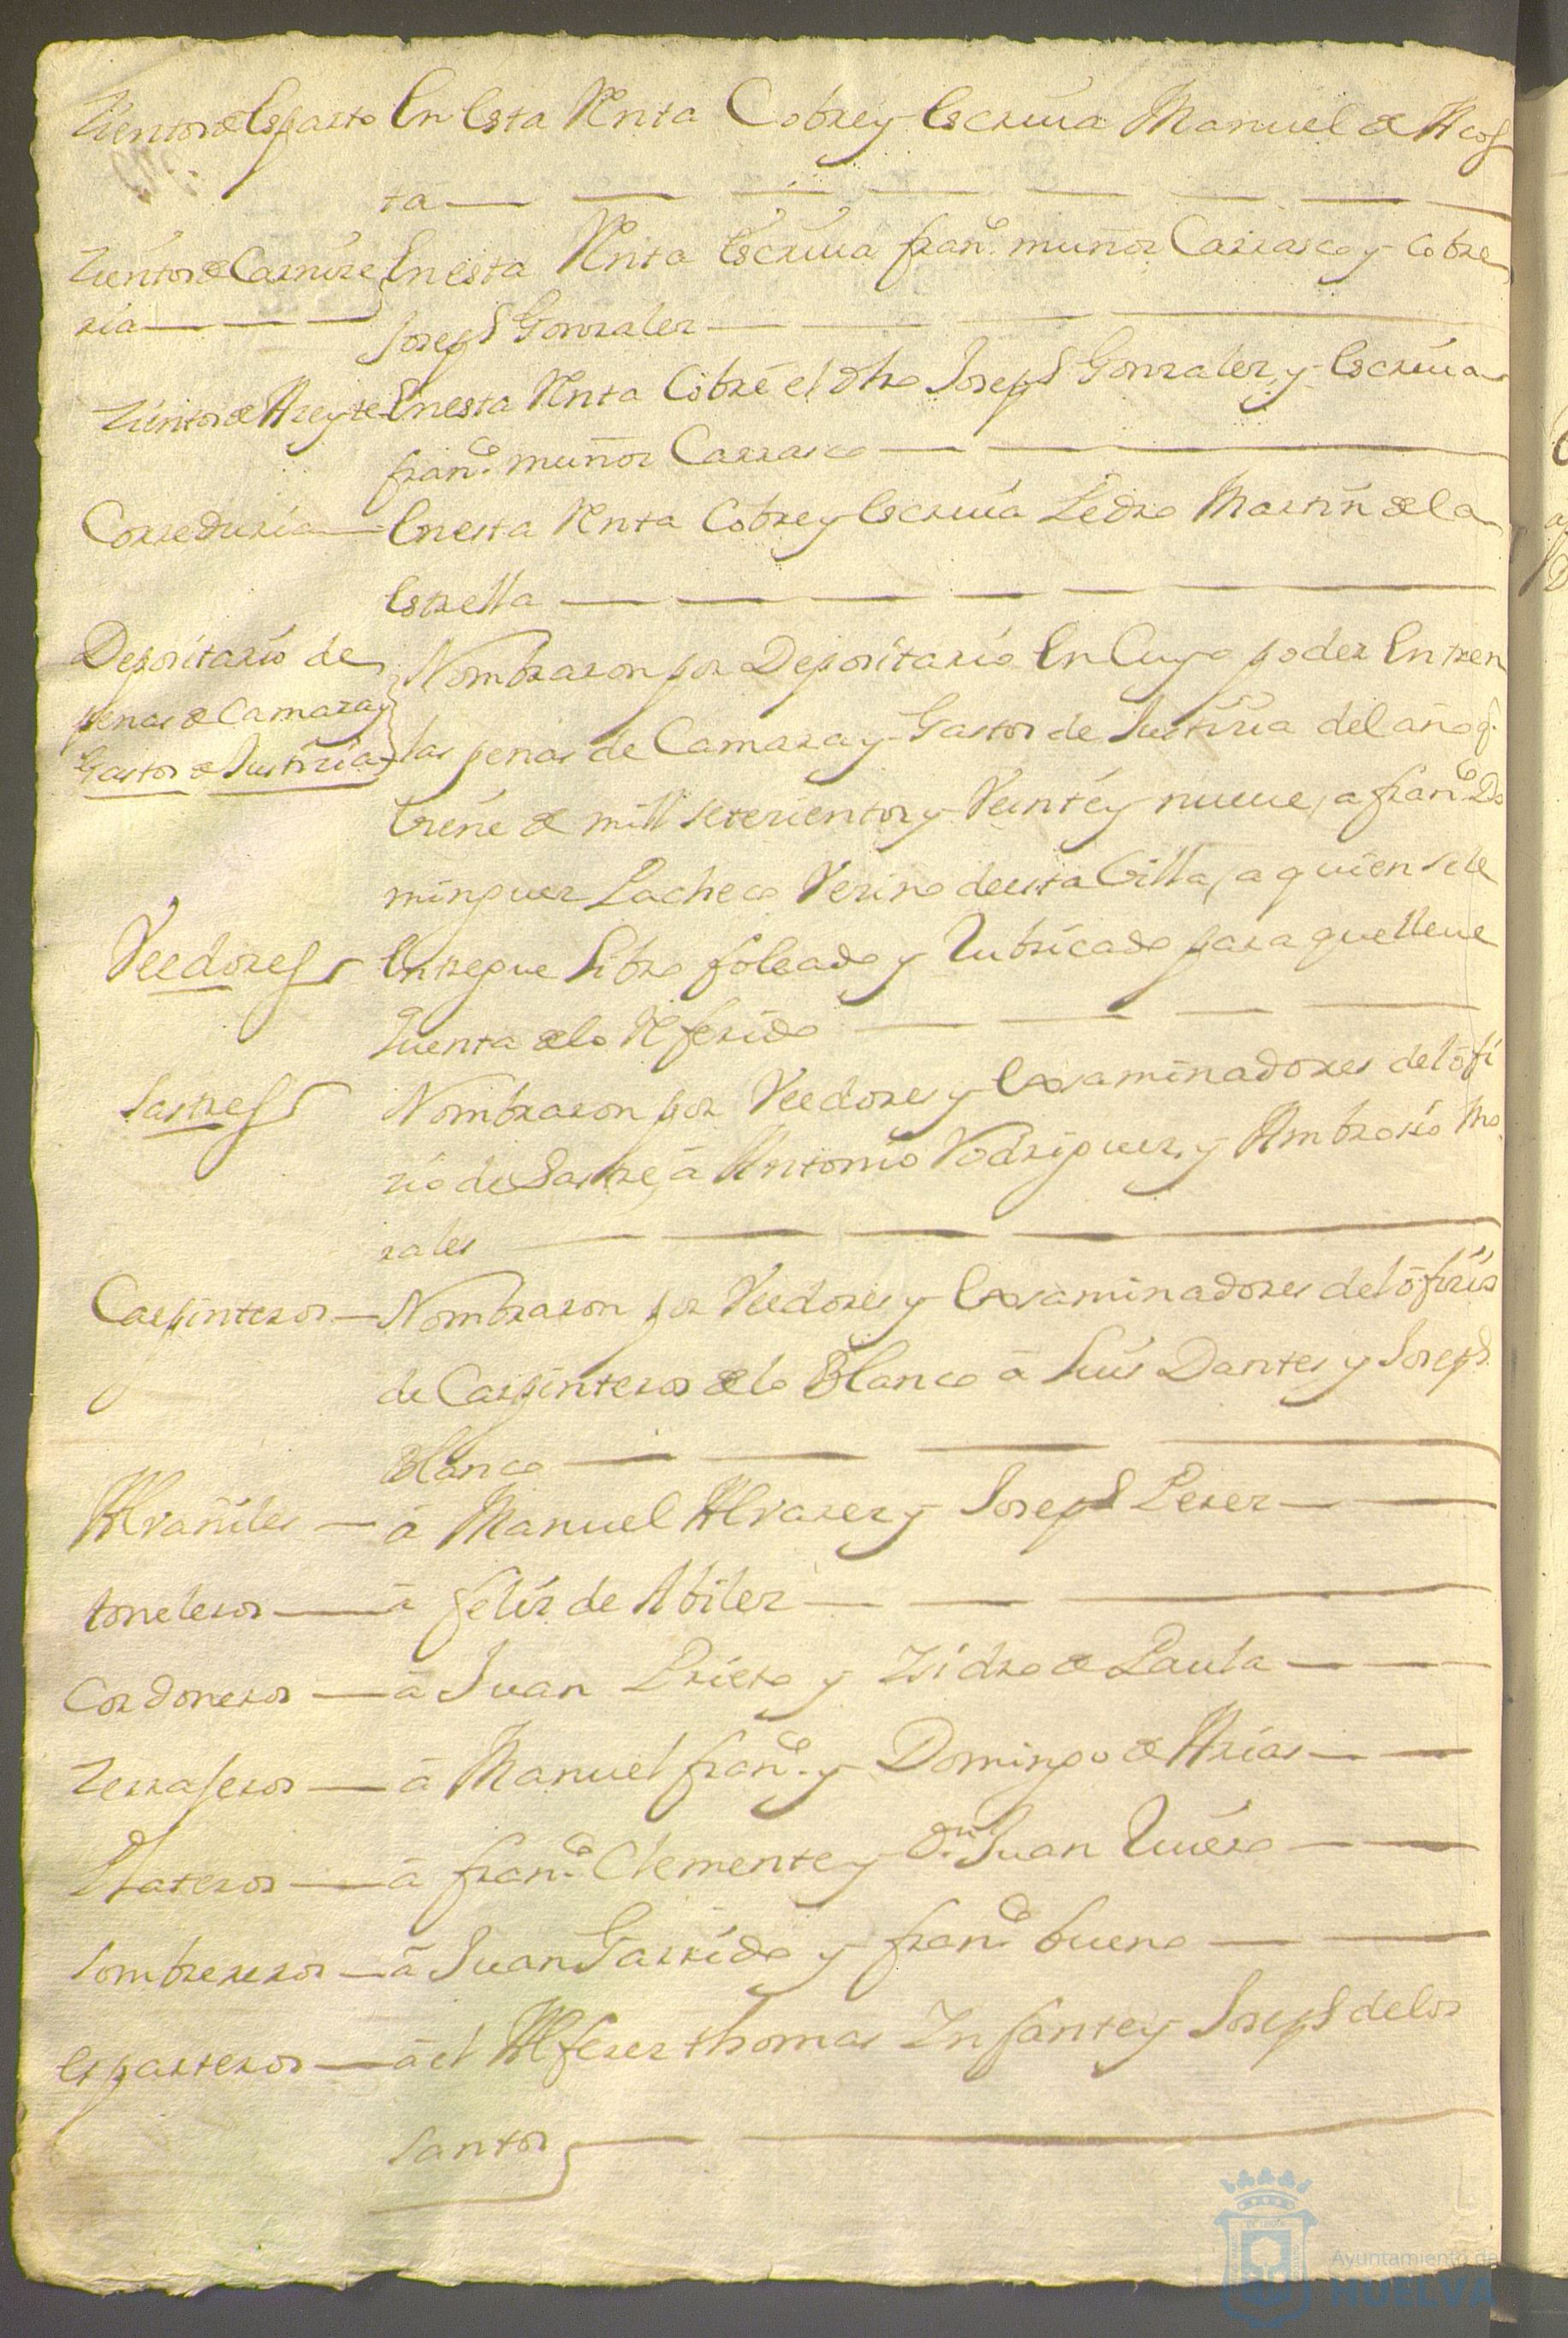 Zientos de Esparto En Esta Renta Cobre y Escriua Manuel de Acos
ta
Zientos de Carnize En esta Renta Escriua franco. muñoz Carrasco y Cobre
ria Joseph Gonzalez
Zientos de Azeyte En esta Renta Cobre el dho Joseph Gonzalez, y Escriua
franco. muñoz Carrasco
Correduria En esta Renta Cobre y Escriua Pedro Martin de la
Estrella
Depositario de
penas de Camara y
Gastos de Justizia
Nombraron por Depositario En Cuyo poder Entren
las penas de Camara y Gastos de Justizia del año q.
Viene de mill setezientos y Veinte y nueue, a franco Do
minguez Pacheco Vezino de esta Villa, a quien se le
Veedores Entregue Libro foleado y Rubricado para que lleue
Quenta de lo Referido
Sastres Nombraron por Veedores y Exsaminadores del ofi
zio de Sastre, a Antonio Rodriguez, y Ambrosio Mo
rales
Carpinteros Nombraron por Veedores y Exsaminadores del ofizio
de Carpinteros de lo Blanco a Luis Dantes y Joseph
Blanco
Alvañiles a Manuel Alvarez y Joseph Perez
toneleros a feliz de Abilez
Cordoneros a Juan Prieto y Izidro de Paula
Zerrajeros a Manuel franco. y Domingo de Arias
Plateros a franco. Clemente y Dn. Juan Riuero
Sombrereros a Juan Garrido y franco bueno
esparteros a el Alferez thomas Infante y Joseph de los
Santos
Ayuntamiento de
HUELVA